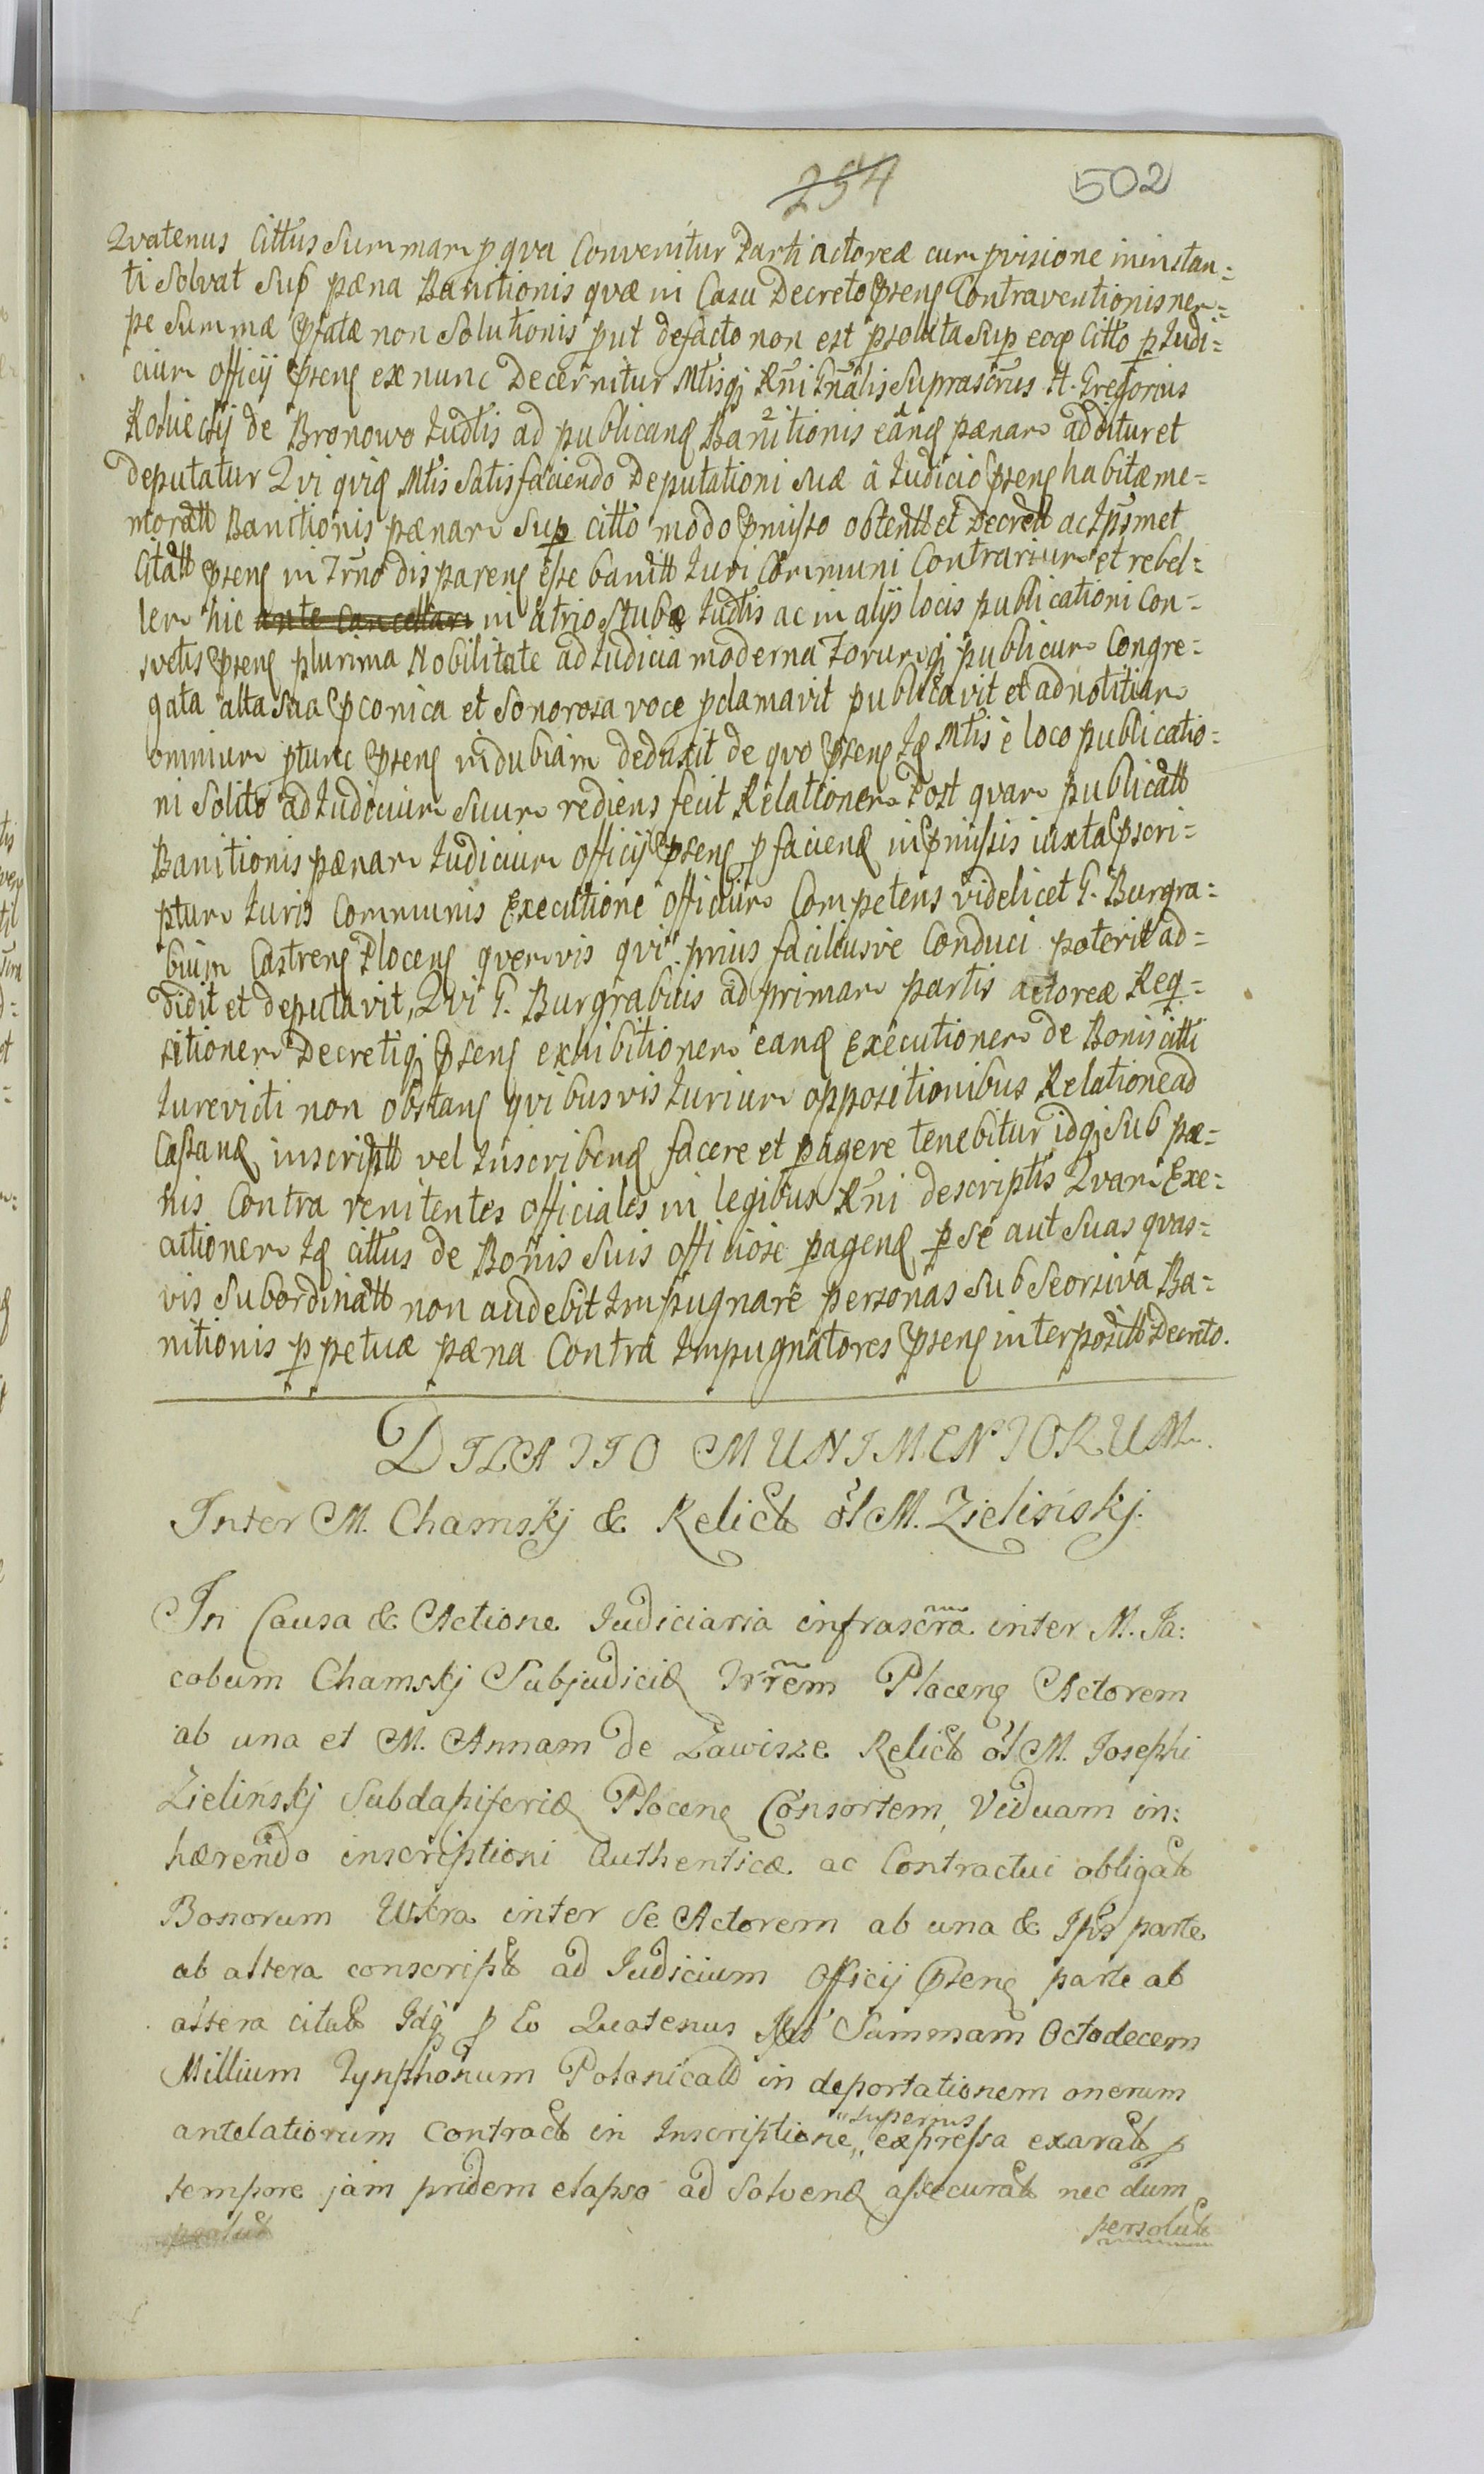 294 502
Qvatenus Cittus Summam p qva Convenitur Parti actoreæ cum pvisione in instan=
ti Solvat Sub pæna Banitionis qvæ in Casu Decreto Pseng Contraventionis nem=
pe Summæ Pfatæ non Solutionis put defacto non est psoluta Sup eoq Citto p Iudi=
cium Officij Pseng ex nunc Decernitur Mtisqj Rni Gnalis Suprascrus H. Gregorius
de Bronowo Iudtis ad publicang Banitionis eang pænam additur et
deputatur Qvi qviq Mtis Satisfaciendo Deputationi suæ â Iudicio Pseng habitæ me=
moratt Banitionis pænam Sup citto modo Pmisso obtentt et Decrett ac Ipsmet
Citatt Pseng in Trno dispareng esse banitt Iuri Communi Contrarium et rebel=
lem hic ante Cancellar in atrio Stubæ Iudtis ac in alijs locis publicationi Con=
svetis Pseng plurima Nobilitate ad Iudicia moderna Forumqj publicum Congre=
gata alta Sua Pconica et Sonorosa voce pclamavit publicavit et ad notitiam
omnium ptunc Pseng indubiam deduxit de qvo Pseng Iq Mtis è loco publicatio=
ni Solito ad Iudicium Suum rediens fecit Relationem Post qvam publicatt
Banitionis pænam Iudicium Officij Pseng p facieng in Pmissis iuxta Pscri=
ptum Iuris Communis Executione Officium Competens videlicet G. Burgra=
bium Castreng Ploceng qvemvis qvi prius faciliusve Conduci poterit ad=
didit et deputavit, Qvi G. Burgrabius ad primam partis actoreæ Req=
sitionem Decretiqj Pseng exhibitionem eang Executionem de Bonis citti
Iurevicti non obstang qvibusvis Iurium oppositionibus Relatione ad
Cassang inscriptt vel Inscribeng facere et pagere tenebitur idqj Sub pæ=
nis Contra renitentes Officiales in legibus Rni descriptis Qvam Exe=
ctionem Iq cittus de Bonis Suis officiose pageng p se aut Suas qvas=
vis Subordinatt non audebit Impugnare personas Sub Seorsiva Ba=
nitionis ppetuæ pæna Contra Impugnatores Pseng interpositt Decreto.
DILATIO MUNIMENTORUM.
Inter M. Chamskj & Relict ol M. Zielinskj.
In Causa & Actione Judiciaria infrascra inter M. Ja:
cobum Chamskj Subjudicid Trrem Placeng Actorem
ab una et M. Annam de Zawisze Relict ol M. Josephi
Zielinskj Subdapiferid Placeng Consortem, Viduam in:
hærendo inscriptioni Authenticæ ac Contractui obligat
Bonorum Ustra inter se Actorem ab una & Ips parte
ab altera conscript ad Judicium Officij Pseng parte ab
altera citat Idq p Eo Quatenus Summam Octodecem
Millium Tynphonum Polonicalt in deportationem onerum
antelatiorum Contract in Inscriptione „superius„ expressa exarat p
tempore jam pridem elapso ad Solveng assecurat nec dum
persolut